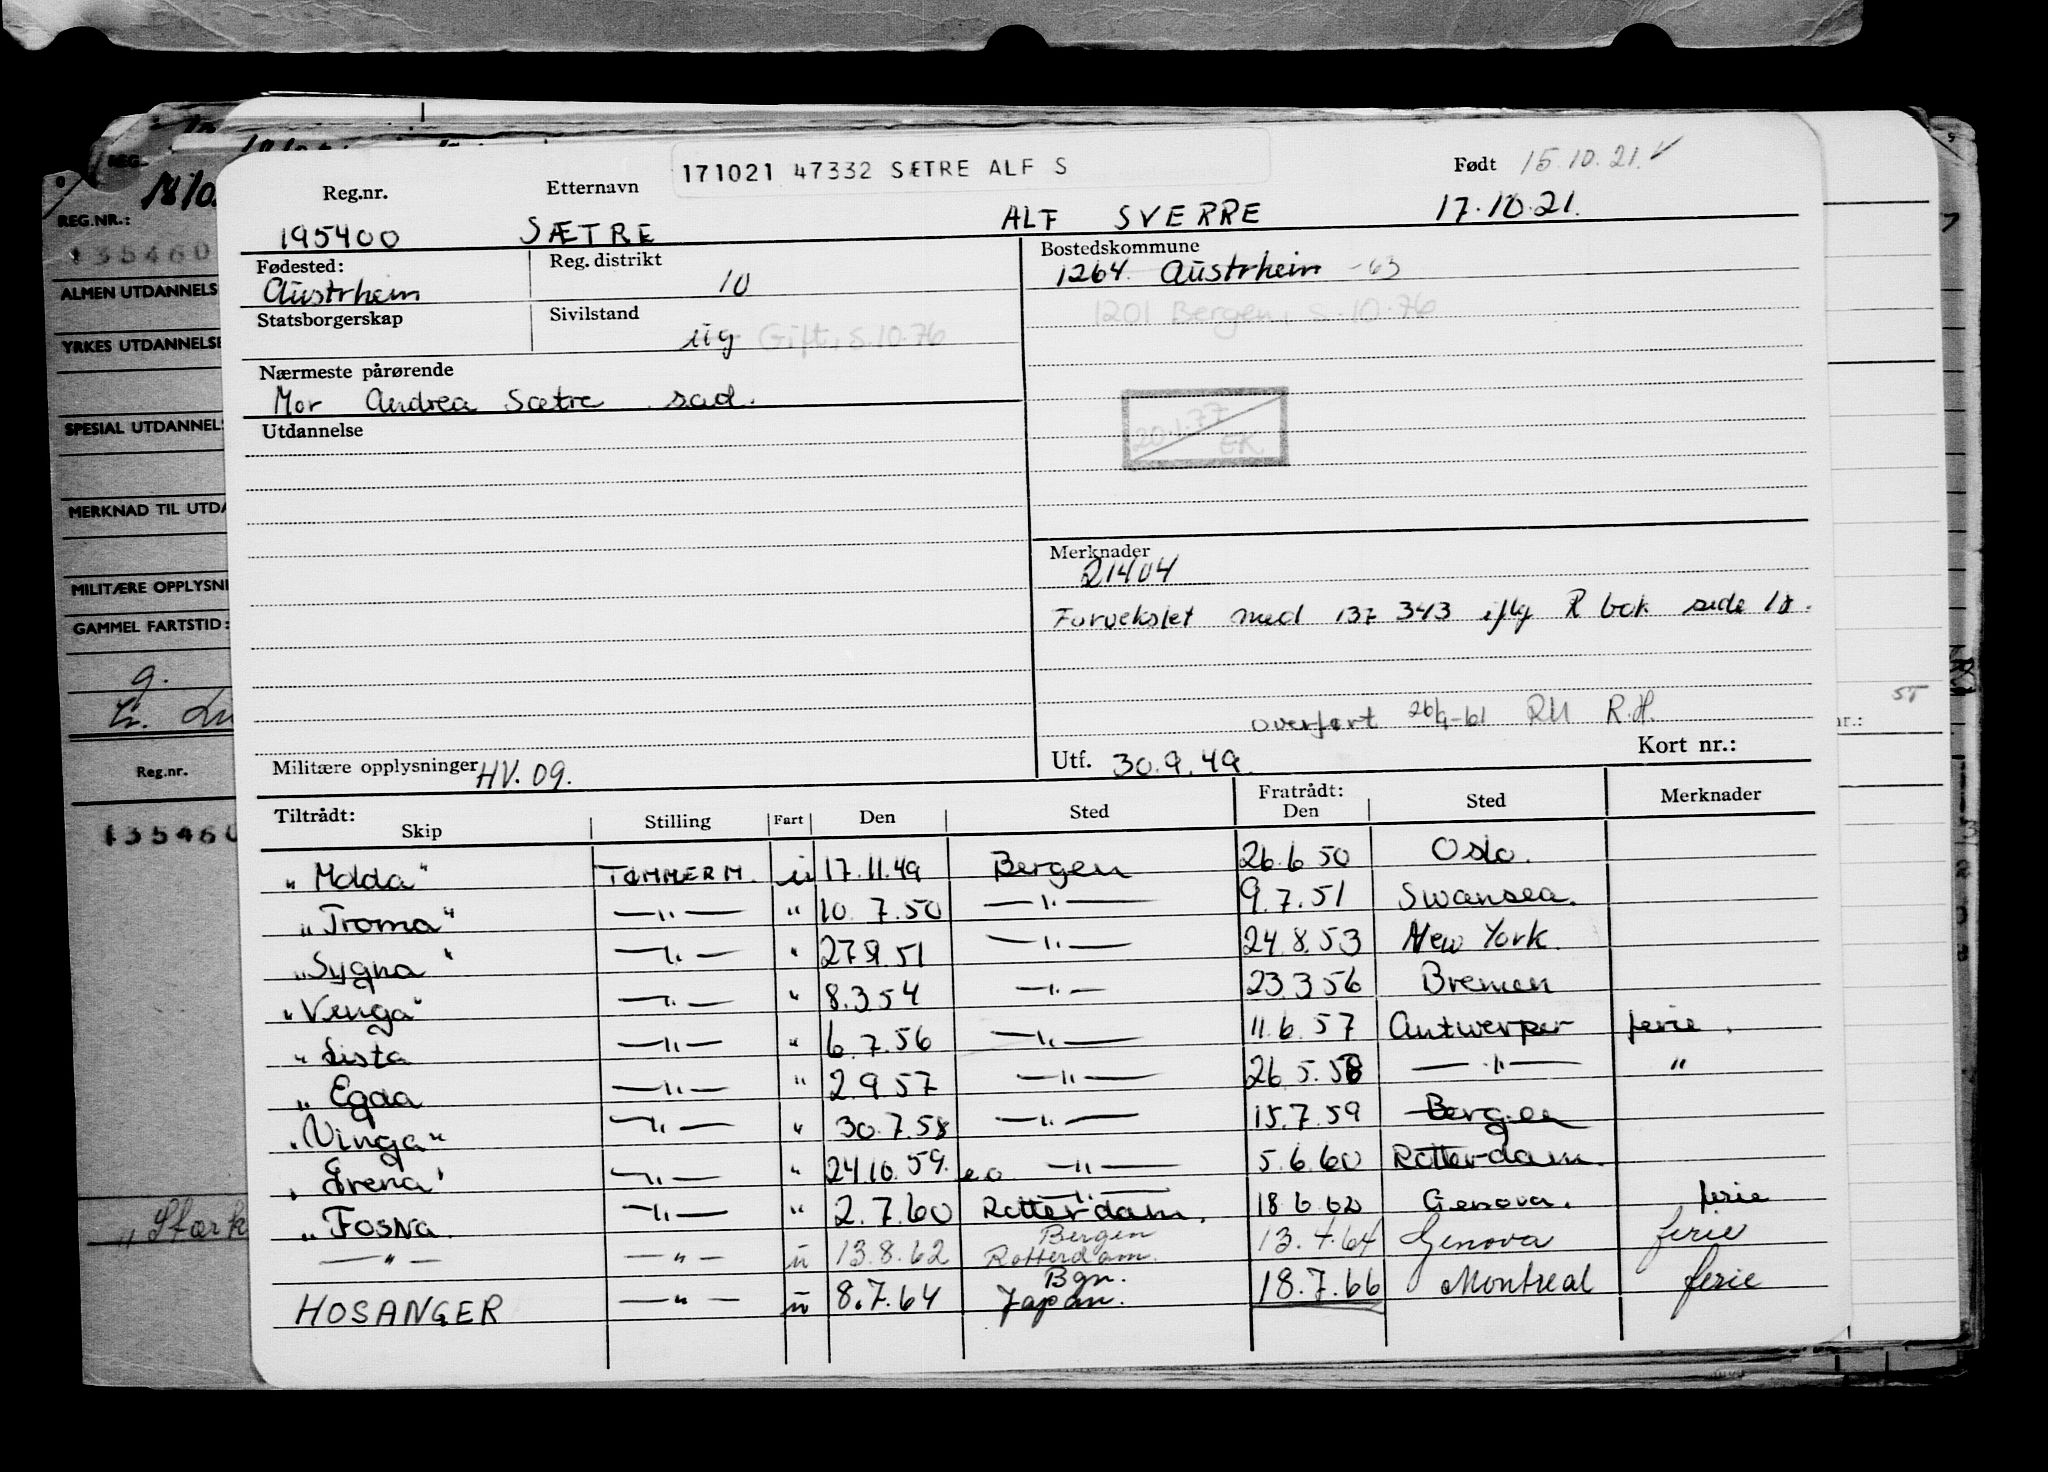 171021 47332 SÆTRE ALF S
Reg.nr. Etternavn Født 15.10.21. ✓
195400 SÆTRE ALF SVERRE 17.10.21.
Fødested: Reg. distrikt Bostedskommune
Austrheim 10 1264. Austrheim -63
Statsborgerskap Sivilstand 1201 Bergen, s. 10.76
ug Gift, s. 10.76
Nærmeste pårørende
Mor Andrea Sætre sad.
Utdannelse
20.1.77 EK
Merknader
21404
Forvekslet med 137 343 iflg R bok side
overført 26/9-61 RU R.H.
Kort nr.:
Militære opplysninger HV. 09. Utf. 30.9.49.
Tiltrådt: Fratrådt:
Skip Stilling Fart Den Sted Den Sted Merknader
"Molda" TØMMERM. u 17.11.49 Bergen 26.6.50 Oslo.
"Troma" —"— " 10.7.50 —"— 9.7.51 Swansea.
"Sygna" —"— " 27.9.51 —"— 24.8.53 New York.
"Venga" —"— " 8.3.54 —"— 23.3.56 Bremen
"Lista —"— " 6.7.56 —"— 11.6.57 Antwerpen ferie.
"Egda —"— " 2.9.57 —"— 26.5.58 —"— "
"Vinga" —"— " 30.7.58 —"— 15.7.59 Bergen
—"— " 24.10.59. —"— 5.6.60 Rotterdam.
"Fosna —"— " 2.7.60 Rotterdam. —"— 18.6.62 Genova. ferie
—"— —"— u 13.8.62 Bergen Rotterdam. 13.4.64 Genova ferie
HOSANGER —"— u 8.7.64 Bgn. Japan. 18.7.66 Montreal ferie
REG.
REG.NR.:
135460
ALMEN UTDANNELS
YRKES UTDANNELSE
SPESIAL UTDANNELS
MERKNAD TIL UTDA
MILITÆRE OPPLYSNI
GAMMEL FARTSTID:
g.
Reg.nr.
135460
nr.: